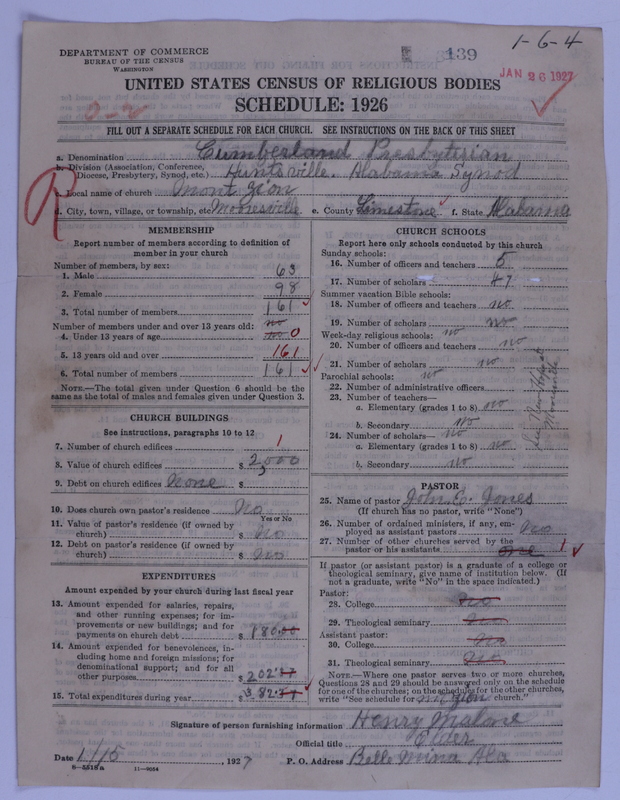 1-6-4
139
DEPARTMENT OF COMMERCE
BUREAU OF THE CENSUS
WASHINGTON
JAN 26 1927
UNITED STATES CENSUS OF RELIGIOUS BODIES
SCHEDULE: 1926
FILL OUT A SEPARATE SCHEDULE FOR EACH CHURCH. SEE INSTRUCTIONS ON THE BACK OF THIS SHEET
a. Denomination Cumberland Presbyterian
b. Division (Association, Conference, Diocese, Presbytery, Synod, etc.) Huntsville. Alabama Synod
c. Local name of church Mont Zion
d. City, town, village, or township, etc. Mooresville e. County Limestone f. State Alabama
MEMBERSHIP
Report number of members according to definition of
member in your church
Number of members, by sex:
1. Male 63
2. Female 98
3. Total number of members 161
Number of members under and over 13 years old: no
4. Under 13 years of age no 0
5. 13 years old and over 161
6. Total number of members 161
NOTE.—The total given under Question 6 should be the
same as the total of males and females given under Question 3.
CHURCH BUILDINGS
See instructions, paragraphs 10 to 12
7. Number of church edifices 1
8. Value of church edifices $ 2,000
9. Debt on church edifices None $
10. Does church own pastor's residence No
Yes or No
11. Value of pastor's residence (if owned by
church) $ No
12. Debt on pastor's residence (if owned by
church) $ No
EXPENDITURES
Amount expended by your church during last fiscal year
13. Amount expended for salaries, repairs,
and other running expenses; for im-
provements or new buildings; and for
payments on church debt $ 180.00
14. Amount expended for benevolences, in-
cluding home and foreign missions; for
denominational support; and for all
other purposes $ 202.37
15. Total expenditures during year $ 382.37
CHURCH SCHOOLS
Report here only schools conducted by this church
Sunday schools:
16. Number of officers and teachers 5
17. Number of scholars 47
Summer vacation Bible schools:
18. Number of officers and teachers no
19. Number of scholars no
Week-day religious schools: no
20. Number of officers and teachers no
21. Number of scholars no
Parochial schools: no
22. Number of administrative officers
23. Number of teachers—
a. Elementary (grades 1 to 8) no
b. Secondary no
24. Number of scholars— no
a. Elementary (grades 1 to 8) no
b. Secondary no
See New Hope
Mooresville
PASTOR
25. Name of pastor John E. Jones
(If church has no pastor, write "None")
26. Number of ordained ministers, if any, em-
ployed as assistant pastors No
27. Number of other churches served by the
pastor or his assistants one 1
If pastor (or assistant pastor) is a graduate of a college or
theological seminary, give name of institution below. (If
not a graduate, write "No" in the space indicated.)
Pastor:
28. College no
29. Theological seminary no
Assistant pastor:
30. College no
31. Theological seminary no
NOTE.—Where one pastor serves two or more churches,
Questions 28 and 29 should be answered only on the schedule
for one of the churches; on the schedules for the other churches,
write "See schedule for Mt Zion church."
Signature of person furnishing information Henry Malone
Official title Elder
Date 1/15, 1927 P. O. Address Belle Mina Ala
8-5518a 11-9064